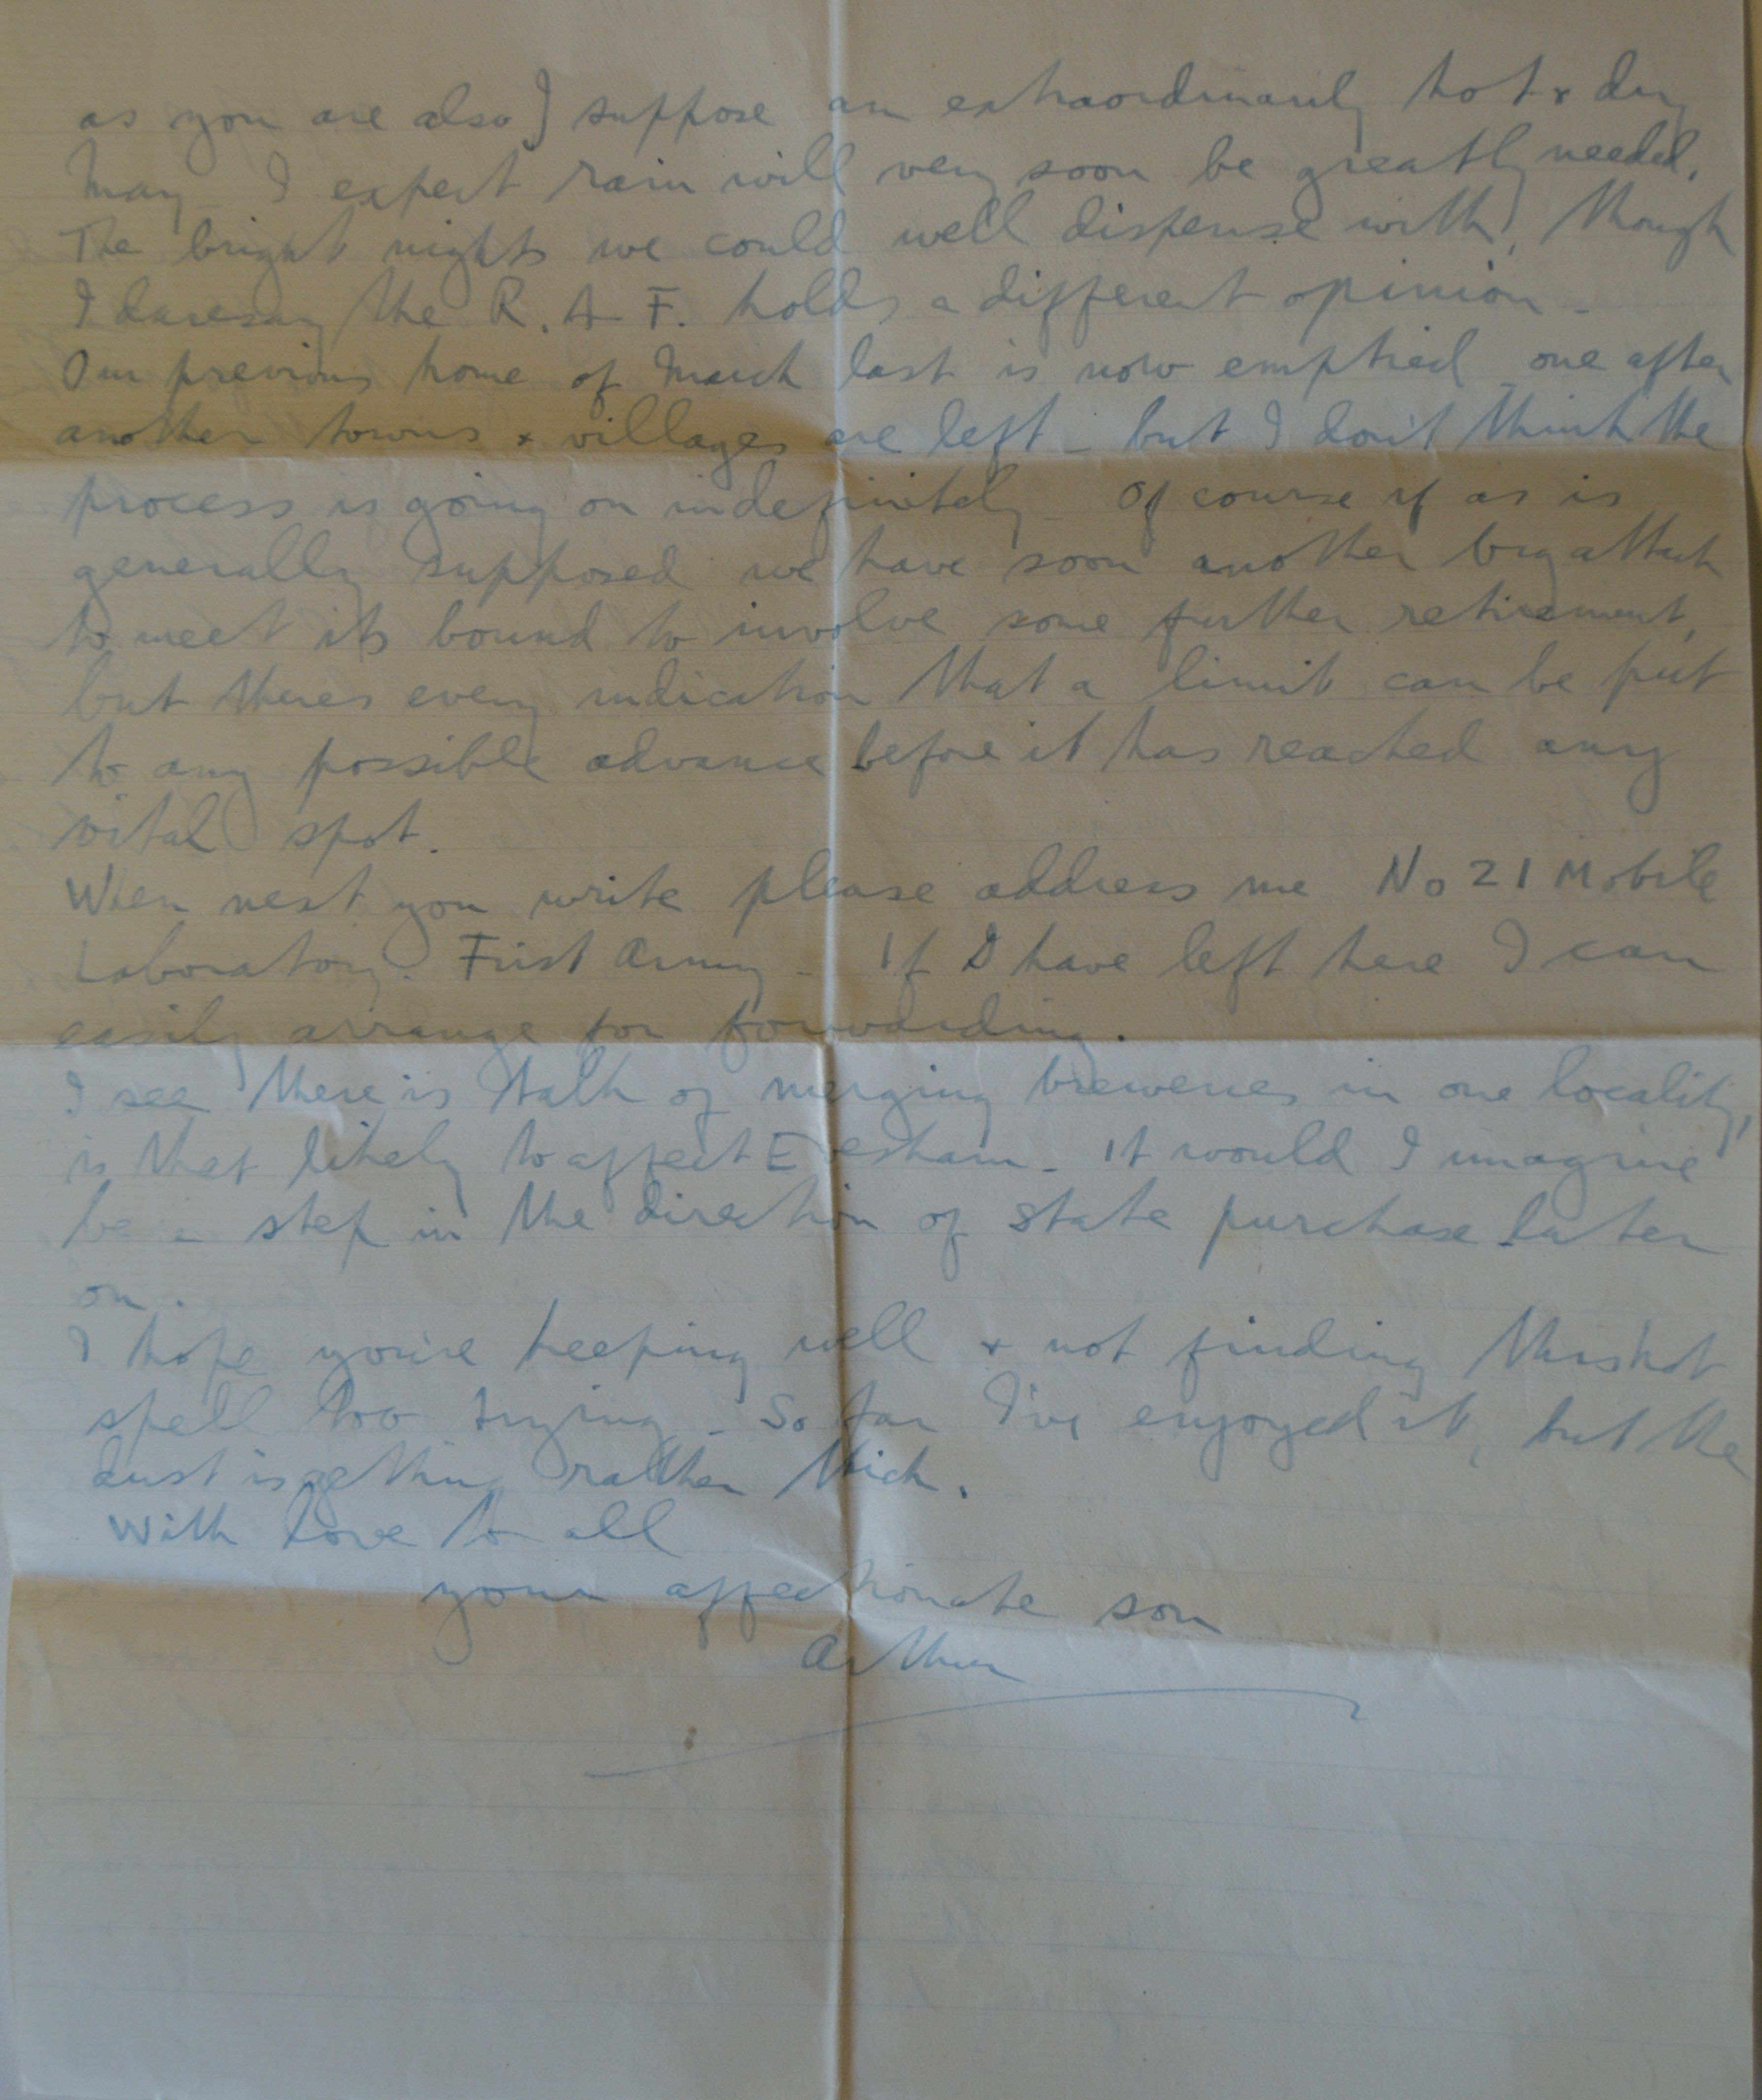 as you are also I suppose an extraordinarily hot & dry
May - I expect rain will very soon be greatly needed.
The bright nights we could well dispense with, though
I daresay the R.A.F. holds a different opinion -
Our previous home of March last is now emptied - one after
another towns & villages are left - but I don't think the
process is going on indefinitely - Of course if as is
generally supposed we have soon another big attack
to meet its bound to involve some further retirement,
but theres every indication that a limit can be put
to any possible advance before it has reached any
vital spot.
When next you write please address me No 21 Mobile
Laboratory. First Army - If I have left here I can
easily arrange for forwarding.
I see there is talk of merging breweries in one locality,
is that likely to affect Evesham - It would I imagine
be a step in the direction of state purchase later
on.
I hope you're keeping well & not finding this hot
spell too trying - So far I've enjoyed it, but the
dust is getting rather thick.
With love to all
your affectionate son
Arthur